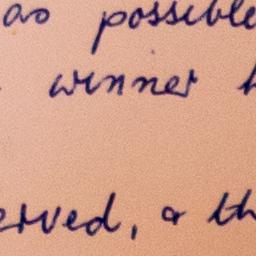 as possible
winner
erved, & th